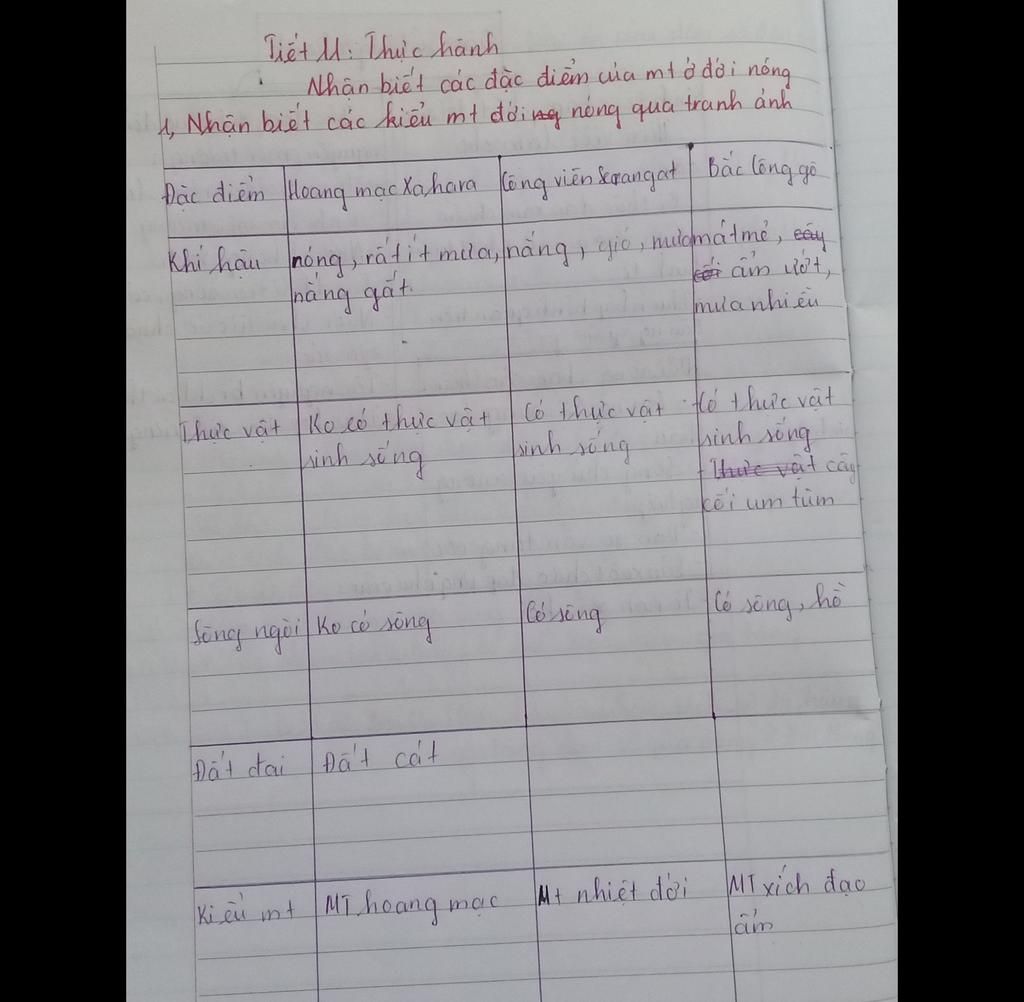 Tiết 11: Thực hành
Nhận biết các đặc điểm của mt ở đới nóng
1, Nhận biết các kiểu mt đới nóng qua tranh ảnh
Đặc điểm Hoang mạc Xa,hara Công viên Seragat Bắc Công gô
Khí hậu nóng, rất ít mưa, nắng, gió, mưa mát mẻ, cây
nắng gắt. cối ẩm ướt,
mưa nhiều
Thực vật Ko có thực vật Có thực vật Có thực vật
sinh sống sinh sống sinh sống
- Thực vật cây
cối um tùm
Sông ngòi Ko có sông Có sông Có sông, hồ
Đất đai Đất cát
Kiểu mt MT hoang mạc Mt nhiệt đới MT xích đạo
ẩm